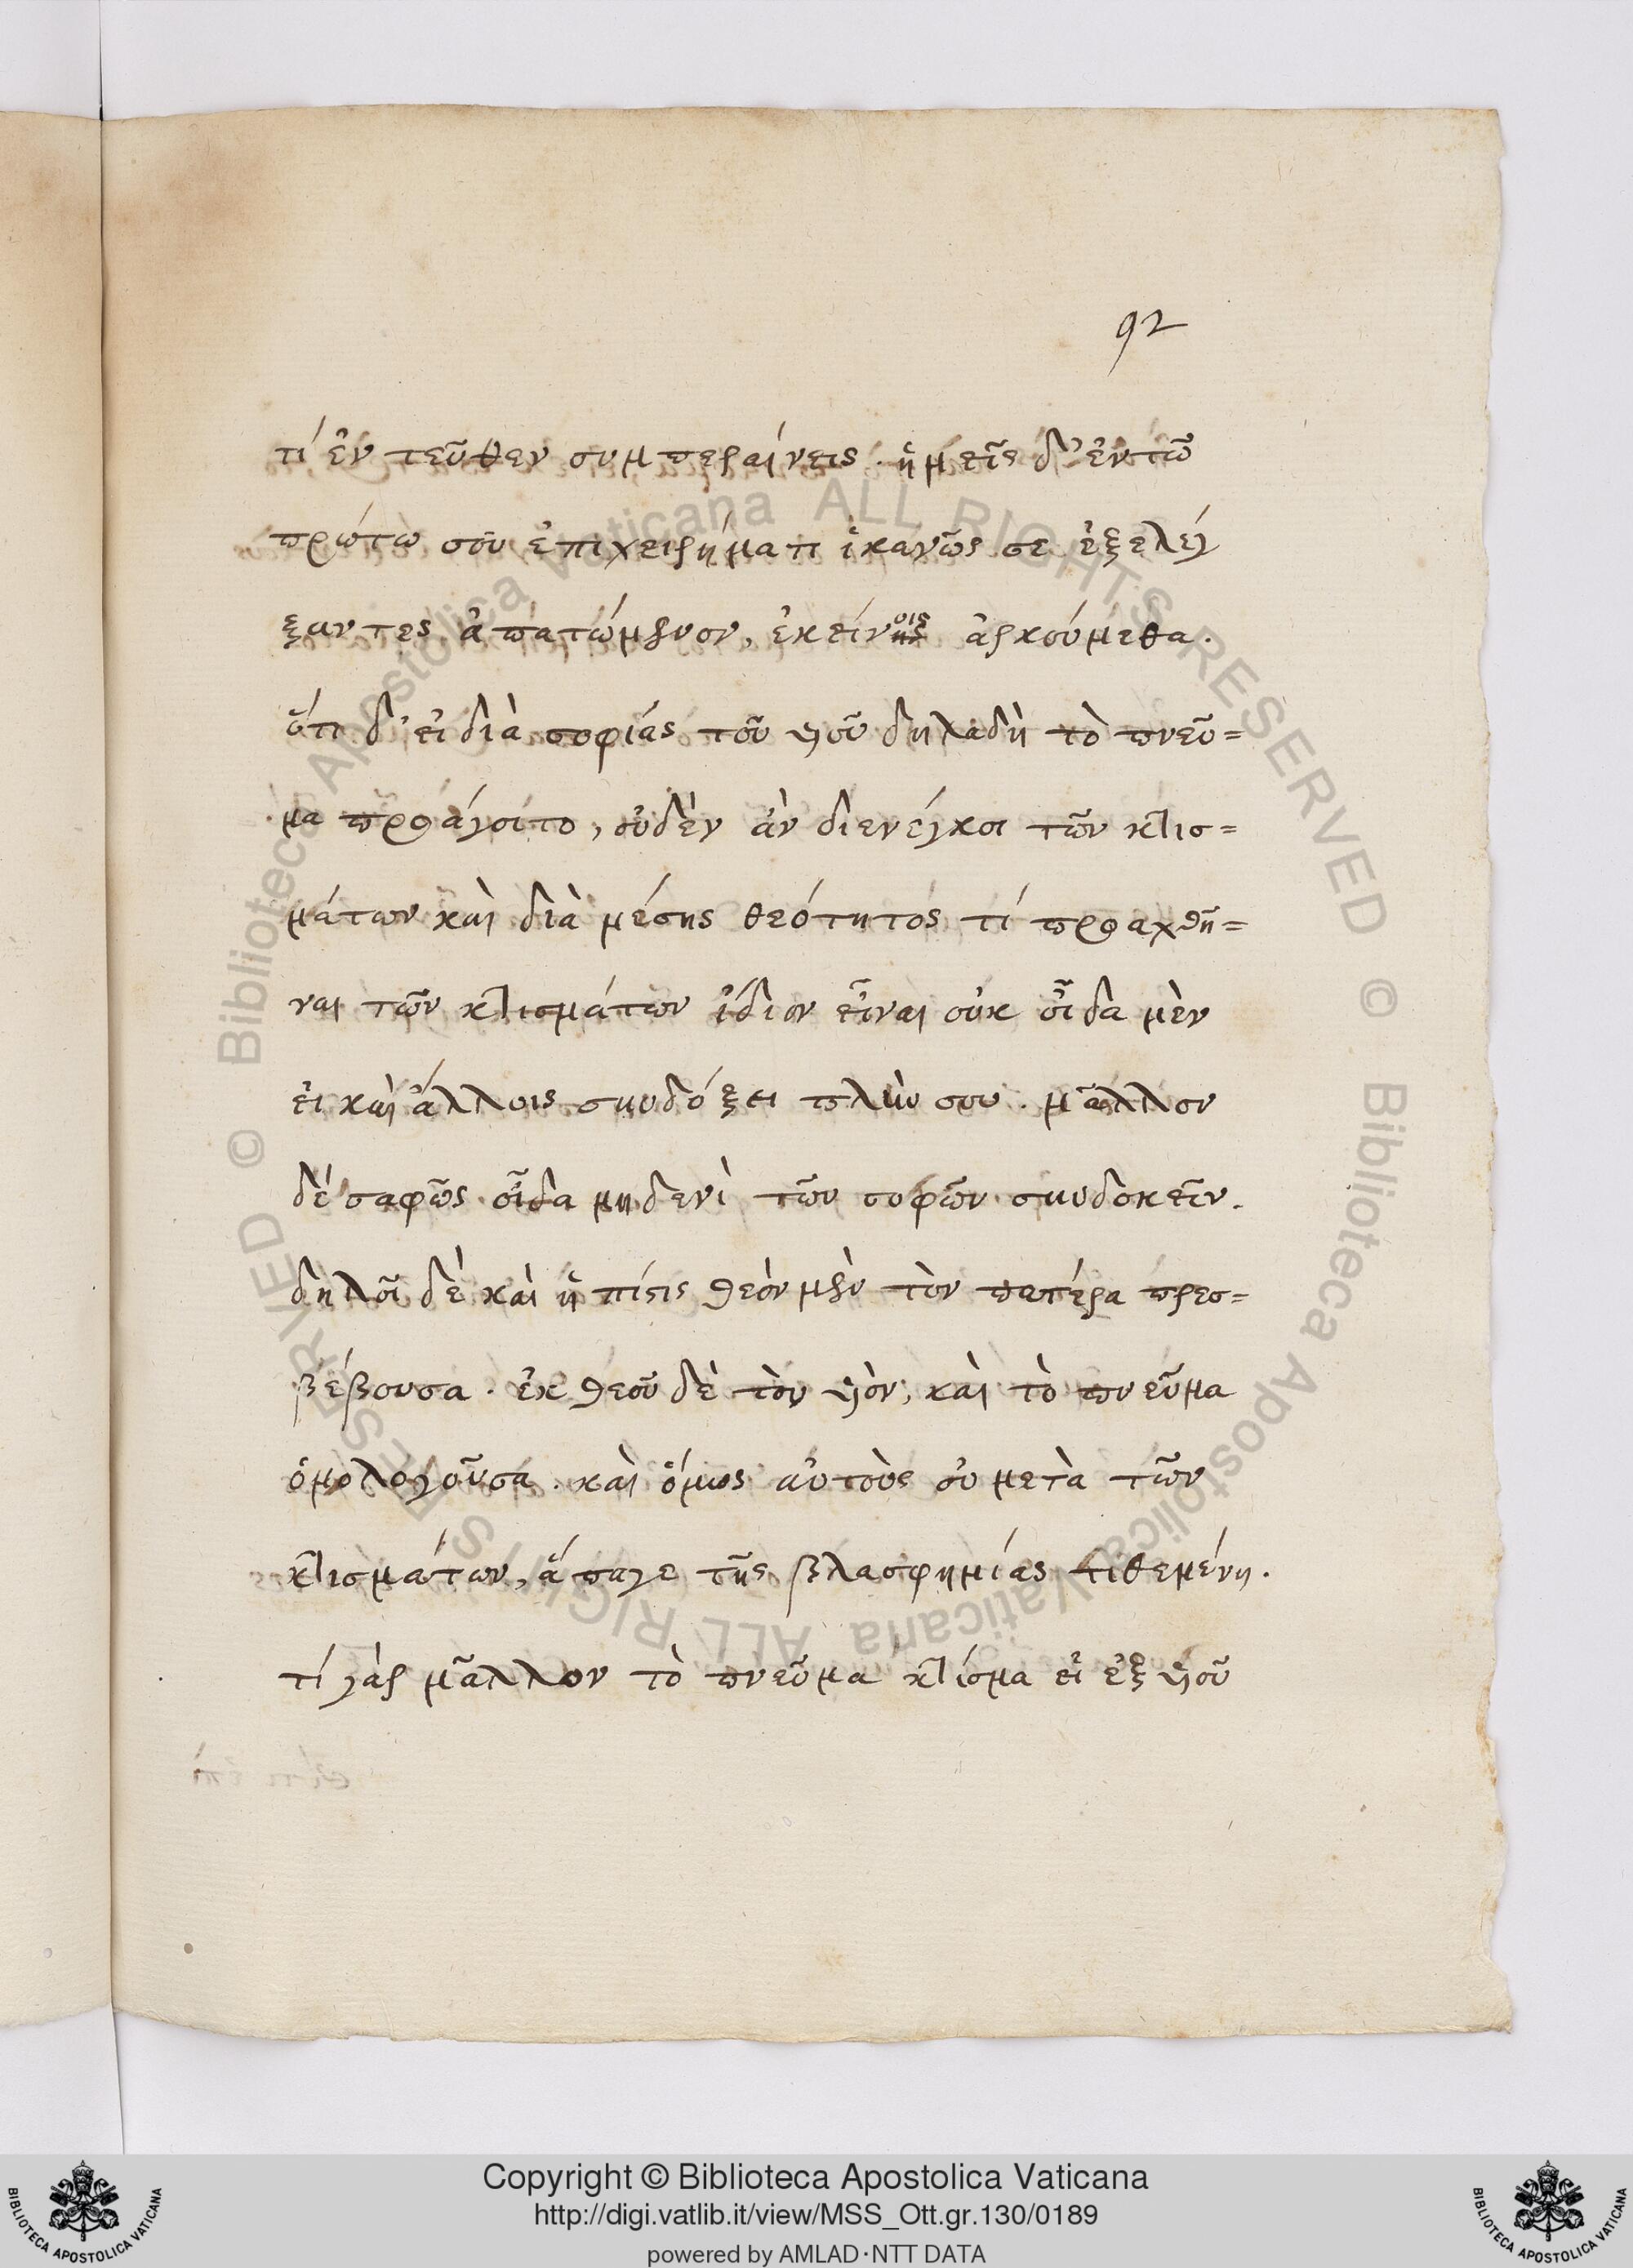 92
τί ἐν τεῦθεν συμπεραίνεις. ἡμεῖς δ' ἐν τῶ
πρώτω σου ἐπιχειρήματι ἱκανῶς σε ἐξελέγ
ξαντες ἀπατώμενον, ἐκείνοις ἀρκούμεθα.
ὅτι δ' εἰ διὰ σοφίας τοῦ υἱοῦ δηλαδὴ τὸ πνεῦ=
μα προάγοιτο, οὐδὲν ἀν διενέγκοι τῶν κτισ=
μάτων καὶ διὰ μέσης θεότητός τί προαχθῆ=
ναι τῶν κτισμάτων ἴδιον εἶναι οὐκ οἶδα μὲν
εἰ καὶ ἄλλοις συνδόξει πλὴν σου. μᾶλλον
δὲ σαφῶς οἶδα μηδενὶ τῶν σοφῶν συνδοκεῖν.
δηλοῖ δὲ καὶ ἡ πίστις θεὸν μὲν τὸν πατέρα πρεσ=
βέβουσα. ἐκ θεοῦ δὲ τὸν υἱὸν, καὶ τὸ πνεῦμα
ὁμολογοῦσα. καὶ ὅμως αὐτοὺς οὐ μετὰ τῶν
κτισμάτων, ἄπαγε τῆς βλασφημίας τιθεμένη.
τί γὰρ μᾶλλον τὸ πνεῦμα κτίσμα εἰ ἐξ υἱοῦ
Copyright © Biblioteca Apostolica Vaticana
http://digi.vatlib.it/view/MSS_Ott.gr.130/0189
powered by AMLAD·NTT DATA
BIBLIOTECA APOSTOLICA VATICANA
BIBLIOTECA APOSTOLICA VATICANA
© Biblioteca Apostolica Vaticana ALL RIGHTS RESERVED © Biblioteca Apostolica Vaticana ALL RIGHTS RESERVED